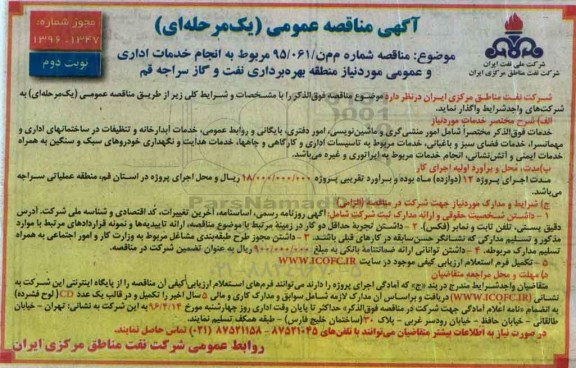 مجوز شماره:
۱۳۹۶، ۱۳۴۷
نوبت دوم
آگهی مناقصه عمومی (یک‌مرحله‌ای)
موضوع: مناقصه شماره م‌م‌ن/۹۵/۰۶۱ مربوط به انجام خدمات اداری
و عمومی موردنیاز منطقه بهره‌برداری نفت و گاز سراجه قم
شرکت ملی نفت ایران
شرکت نفت مناطق مرکزی ایران
شرکت نفت مناطق مرکزی ایران درنظر دارد موضوع مناقصه فوق‌الذکر را با مشخصات و شرایط کلی زیر از طریق مناقصه عمومی (یک‌مرحله‌ای) به
شرکت‌های واجدشرایط واگذار نماید.
الف) شرح مختصر خدمات موردنیاز
خدمات فوق‌الذکر مختصراً شامل امور منشی‌گری و ماشین‌نویسی، امور دفتری، بایگانی و روابط عمومی، خدمات آبدارخانه و تنظیفات در ساختمانهای اداری و
مهمانسرا، خدمات فضای سبز و باغبانی، خدمات مربوط به تاسیسات اداری و کارگاهی و چاهها، خدمات هدایت و نگهداری خودروهای سبک و سنگین به همراه
خدمات ایمنی و آتش‌نشانی، انجام خدمات مربوط به اپراتوری و غیره می‌باشد.
ب) مدت، محل و برآورد اولیه اجرای کار
مدت اجرای پروژه ۱۲ (دوازده) ماه بوده و برآورد تقریبی پروژه ۱۸/۰۰۰/۰۰۰/۰۰۰ ریال و محل اجرای پروژه در استان قم، منطقه عملیاتی سراجه
می‌باشد.
ج) شرایط و مدارک موردنیاز جهت شرکت در مناقصه (الزامی)
۱- داشتن شخصیت حقوقی و ارائه مدارک ثبت شرکت شامل: آگهی روزنامه رسمی، اساسنامه، آخرین تغییرات، کد اقتصادی و شناسه ملی شرکت، آدرس
دقیق پستی، تلفن ثابت و نمابر (فکس). ۲- داشتن تجربه حداقل دو کار در زمینه مرتبط با موضوع مناقصه، ارائه تاییدیه‌ها و نمونه قراردادهای مرتبط با موارد
مذکور و تسلیم مدارکی که نشانگر حسن‌سابقه در کارهای قبلی باشند. ۳- داشتن مجوز طرح طبقه‌بندی مشاغل مربوط به وزارت کار و امور اجتماعی به همراه
تسلیم مدارک مربوطه. ۴- داشتن توانایی ارائه ضمانتنامه بانکی به مبلغ ۹۰۰/۰۰۰/۰۰۰ ریال به عنوان تضمین شرکت در مناقصه.
۵- تکمیل فرم استعلام ارزیابی کیفی موجود در سایت WWW.ICOFC.IR
د) مهلت و محل مراجعه متقاضیان
متقاضیان واجدشرایط مندرج در بند «ج» که آمادگی اجرای پروژه را دارند می‌توانند فرم‌های استعلام ارزیابی کیفی آن مناقصه را از پایگاه اینترنتی این شرکت به
نشانی (WWW.ICOFC.IR) دریافت و براساس آن مدارک لازمه شامل سوابق و مدارک کاری و مالی ۵ سال اخیر را تکمیل و در قالب یک عدد CD (لوح فشرده)
به انضمام «نامه اعلام آمادگی جهت شرکت در مناقصه فوق‌الذکر» حداکثر تا پایان وقت اداری روز چهارشنبه مورخ ۹۶/۴/۱۴ به این شرکت به نشانی: تهران - خیابان
طالقانی - خیابان حافظ - خیابان رودسر غربی - پلاک ۳۰ (ساختمان خلیج فارس) - طبقه همکف تسلیم نمایند.
در صورت نیاز به اطلاعات بیشتر متقاضیان می‌توانند با تلفن‌های ۸۷۵۲۱۰۴۵ - ۸۷۵۲۱۱۵۸ (۰۲۱) تماس حاصل نمایند.
روابط عمومی شرکت نفت مناطق مرکزی ایران